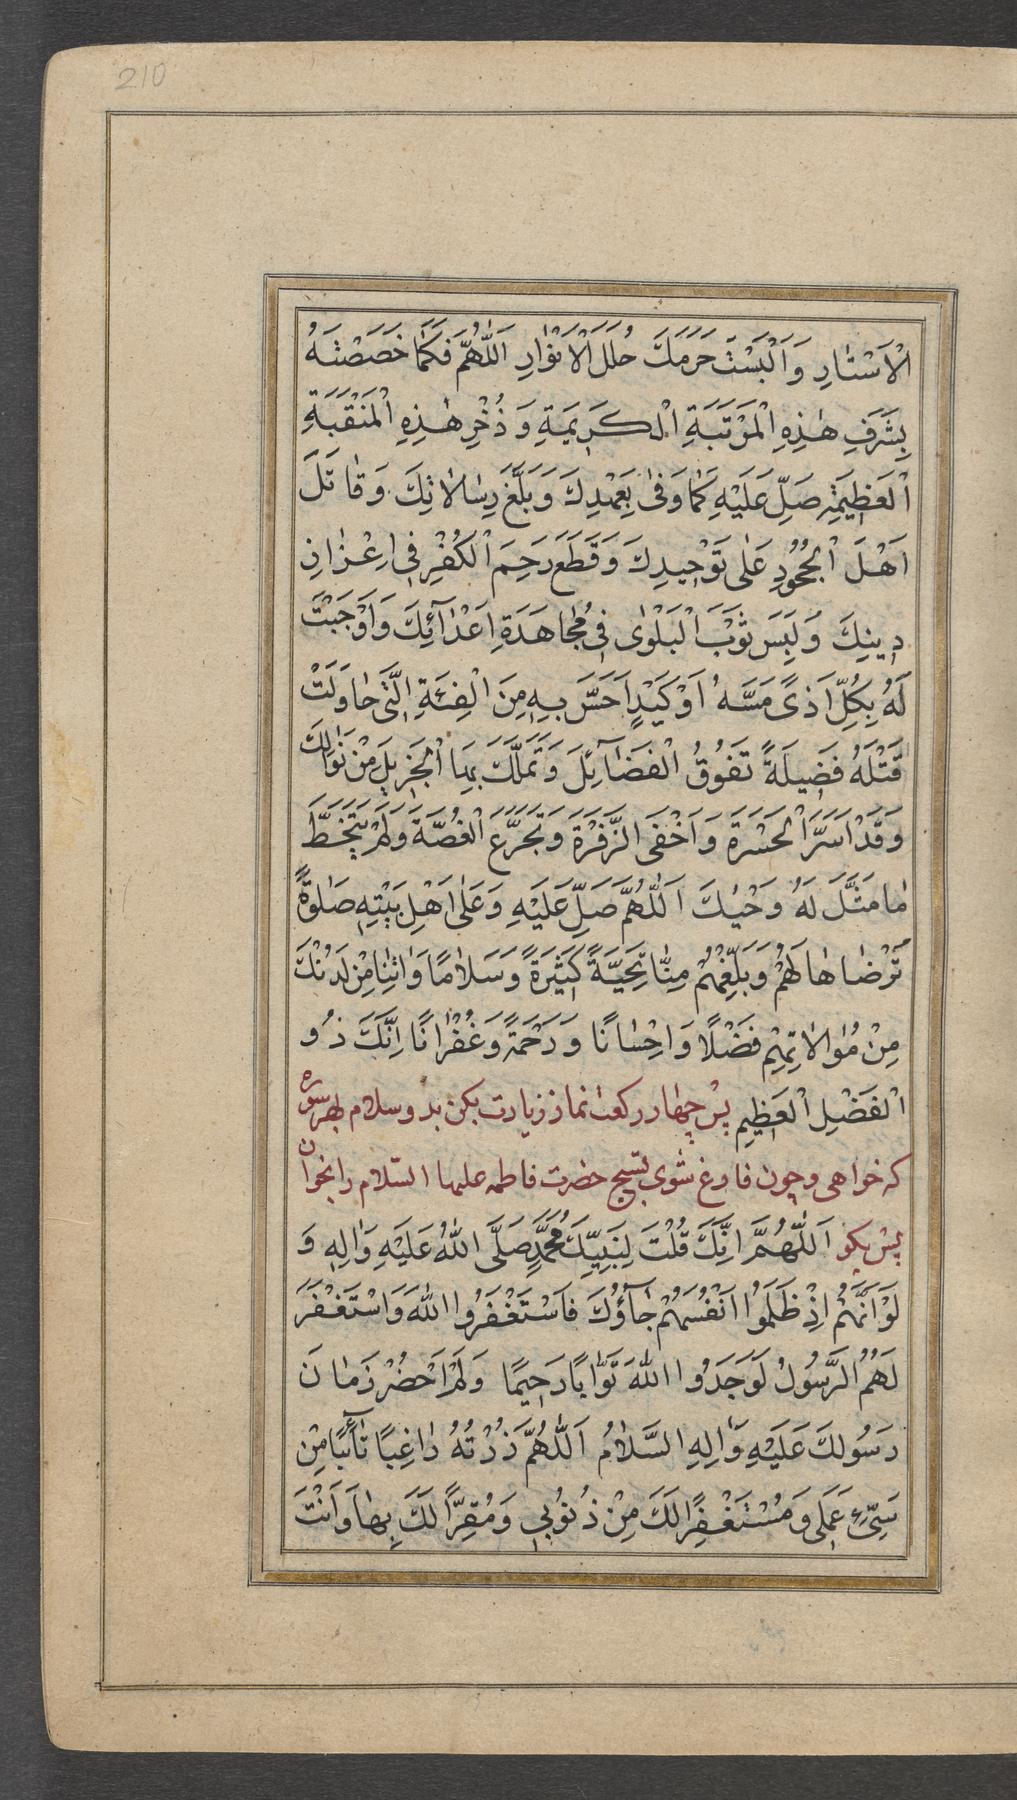 210
الْاَسْتٰارِ وَاَلْبَسْتَ حَرَمَكَ حُلَلَ الْاَنْوٰارِ اَللّٰهُمَّ فَكَمٰا خَصَصْتَهُ
بِشَرَفِ هٰذِهِ الْمَرْتَبَةِ الْكَرِيمَةِ وَذُخْرِ هٰذِهِ الْمَنْقَبَةِ
الْعَظِيمَةِ صَلِّ عَلَيْهِ كَمٰا وَفٰى بِعَهْدِكَ وَبَلَّغَ رِسٰالاٰتِكَ وَقٰاتَلَ
اَهْلَ الْجُحُودِ عَلٰى تَوْحِيدِكَ وَقَطَعَ رَحِمَ الْكُفْرِ فِي اِعْزٰازِ
دِينِكَ وَلَبِسَ ثَوْبَ الْبَلْوٰى فِي مُجٰاهَدَةِ اَعْدٰآئِكَ وَاَوْجَبْتَ
لَهُ بِكُلِّ اَذىً مَسَّهُ اَوْ كَيْدٍ اَحَسَّ بِهِ مِنَ الْفِئَةِ الَّتِي حٰاوَلَتْ
قَتْلَهُ فَضِيلَةً تَفُوقُ الْفَضَآئِلَ وَتَمَلَّكَ بِهَا الْجَزِيلَ مِنْ نَوٰالِكَ
وَقَدْ اَسَرَّ الْحَسْرَةَ وَاَخْفَى الزَّفْرَةَ وَتَجَرَّعَ الْغُصَّةَ وَلَمْ يَتَخَطَّ
مٰا مَثَّلَ لَهُ وَحْيُكَ اَللّٰهُمَّ صَلِّ عَلَيْهِ وَعَلٰى اَهْلِ بَيْتِهِ صَلٰوةً
تَرْضٰاهٰا لَهُمْ وَبَلِّغْهُمْ مِنّٰا تَحِيَّةً كَثِيرَةً وَسَلاٰمًا وَاٰتِنٰا مِنْ لَدُنْكَ
مِنْ مُوٰالاٰتِهِمْ فَضْلًا وَاِحْسٰانًا وَرَحْمَةً وَغُفْرٰانًا اِنَّكَ ذُو
الْفَضْلِ الْعَظِيمِ پس چهار ركعت نماز زيارت بكن بدو سلام بهر سوره
كه خواهى و چون فارغ شوى تسبيح حضرت فاطمه عليها السّلام را بخوان
پس بكو اَللّٰهُمَّ اِنَّكَ قُلْتَ لِنَبِيِّكَ مُحَمَّدٍ صَلَّى اللّٰهُ عَلَيْهِ وَاٰلِهِ وَ
لَوْ اَنَّهُمْ اِذْ ظَلَمُوا اَنْفُسَهُمْ جٰآؤُكَ فَاسْتَغْفَرُوا اللّٰهَ وَاسْتَغْفَرَ
لَهُمُ الرَّسُولُ لَوَجَدُوا اللّٰهَ تَوّٰابًا رَحِيمًا وَلَمْ اَحْضُرْ زَمٰانَ
رَسُولِكَ عَلَيْهِ وَاٰلِهِ السَّلاٰمُ اَللّٰهُمَّ زُرْتُهُ رٰاغِبًا تٰآئِبًا مِنْ
سَيِّئِ عَمَلِي وَمُسْتَغْفِرًا لَكَ مِنْ ذُنُوبِي وَمُقِرًّا لَكَ بِهٰا وَاَنْتَ